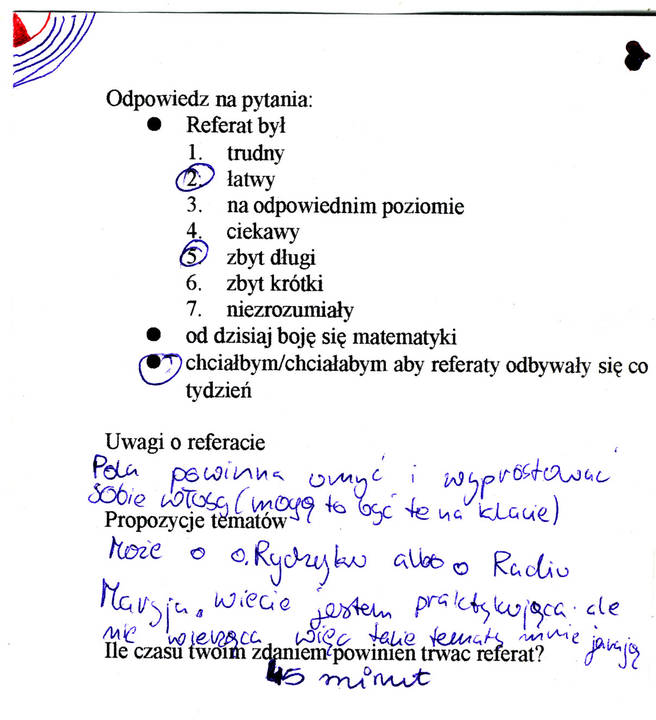 Odpowiedz na pytania:
● Referat był
1. trudny
2. łatwy
3. na odpowiednim poziomie
4. ciekawy
5. zbyt długi
6. zbyt krótki
7. niezrozumiały
● od dzisiaj boję się matematyki
● chciałbym/chciałabym aby referaty odbywały się co
tydzień
Uwagi o referacie
Pola powinna umyć i wyprostować
sobie włosy (mogą to być te na klacie)
Propozycje tematów
Może o o. Rydzyku albo o Radiu
Maryja, wiecie jestem praktykująca ale
nie wierząca więc takie tematy mnie jarają
Ile czasu twoim zdaniem powinien trwac referat?
45 minut